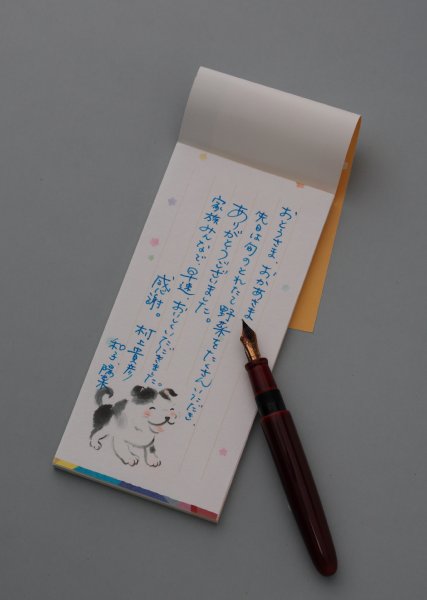 おとうさま、おかあさま
先日は旬のとれたて野菜をたくさんいただき、
ありがとうございました。
家族みんなで、早速、おいしくいただきました。
感謝。
村上貴彦
和子 陽菜